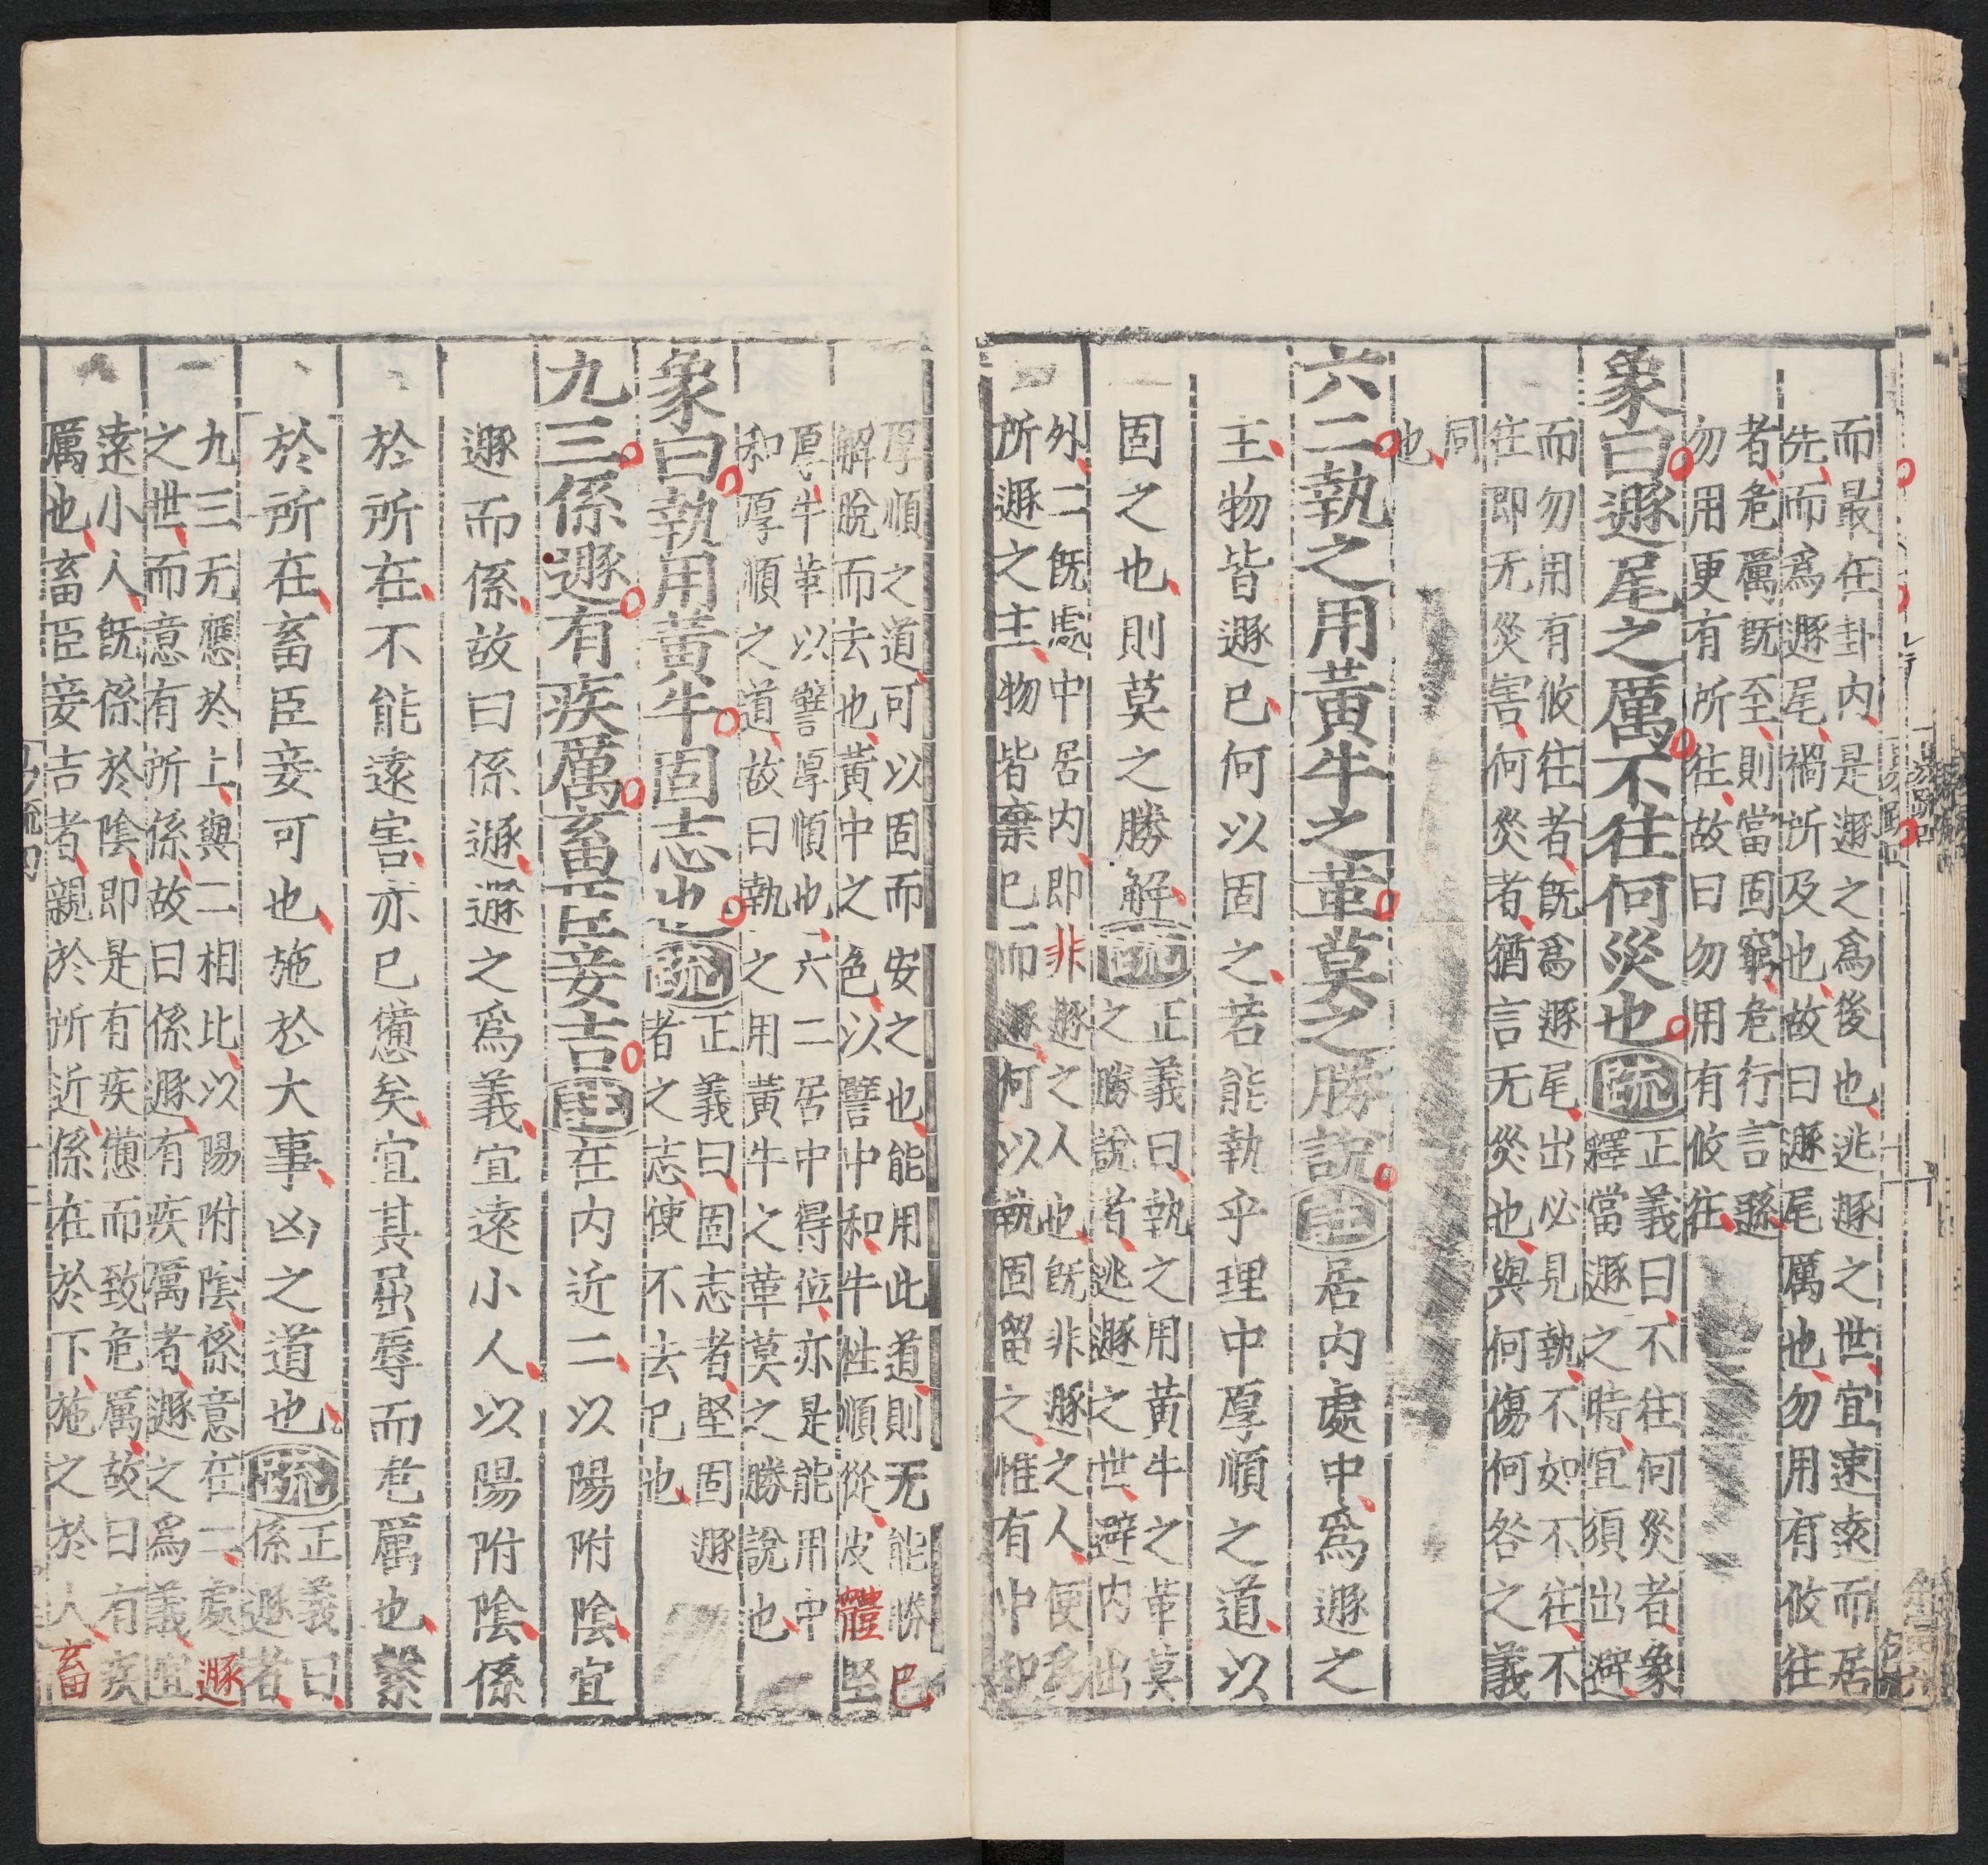 而最在卦内是遯之爲後也逃遯之世宜速遠而居
先而爲遯尾禍所及也故曰遯尾厲也勿用有攸往
者危厲既至則當固窮危行言遜
勿用更有所往故曰勿用有攸往
象曰遯尾之厲不往何災也疏
正義曰不往何災者象
釋當遯之時宜須出避
而勿用有攸往者既爲遯尾出必見執不如不往不
往即无災害何災者猶言无災也與何傷何咎之義
同
也
六二執之用黃牛之革莫之勝說註居内處中爲遯之
主物皆遯已何以固之若能執乎理中厚順之道以
固之也則莫之勝解疏
正義曰執之用黃牛之革莫
之勝說者逃遯之世避内出
外二既處中居内即非遯之人也既非遯之人便爲
所遯之主物皆棄已而遯何以執固留之惟有中和
厚順之道可以固而安之也能用此道則无能勝已
解脫而去也黃中之色以譬中和牛性順從皮體堅
厚牛革以譬厚順也六二居中得位亦是能用中
和厚順之道故曰執之用黃牛之革莫之勝說也
象曰執用黃牛固志也疏
正義曰固志者堅固遯
者之志使不去已也
九三係遯有疾厲畜臣妾吉註在内近二以陽附陰宜
遯而係故曰係遯遯之爲義宜遠小人以陽附陰係
於所在不能遠害亦已憊矣宜其屈辱而危厲也繫
於所在畜臣妾可也施於大事凶之道也疏
正義曰
係遯者
九三无應於上與二相比以陽附陰係意在二處遯
之世而意有所係故曰係遯有疾厲者遯之爲義宜
遠小人既係於陰即是有疾憊而致危厲故曰有疾
厲也畜臣妾吉者親於所近係在於下施之於人畜